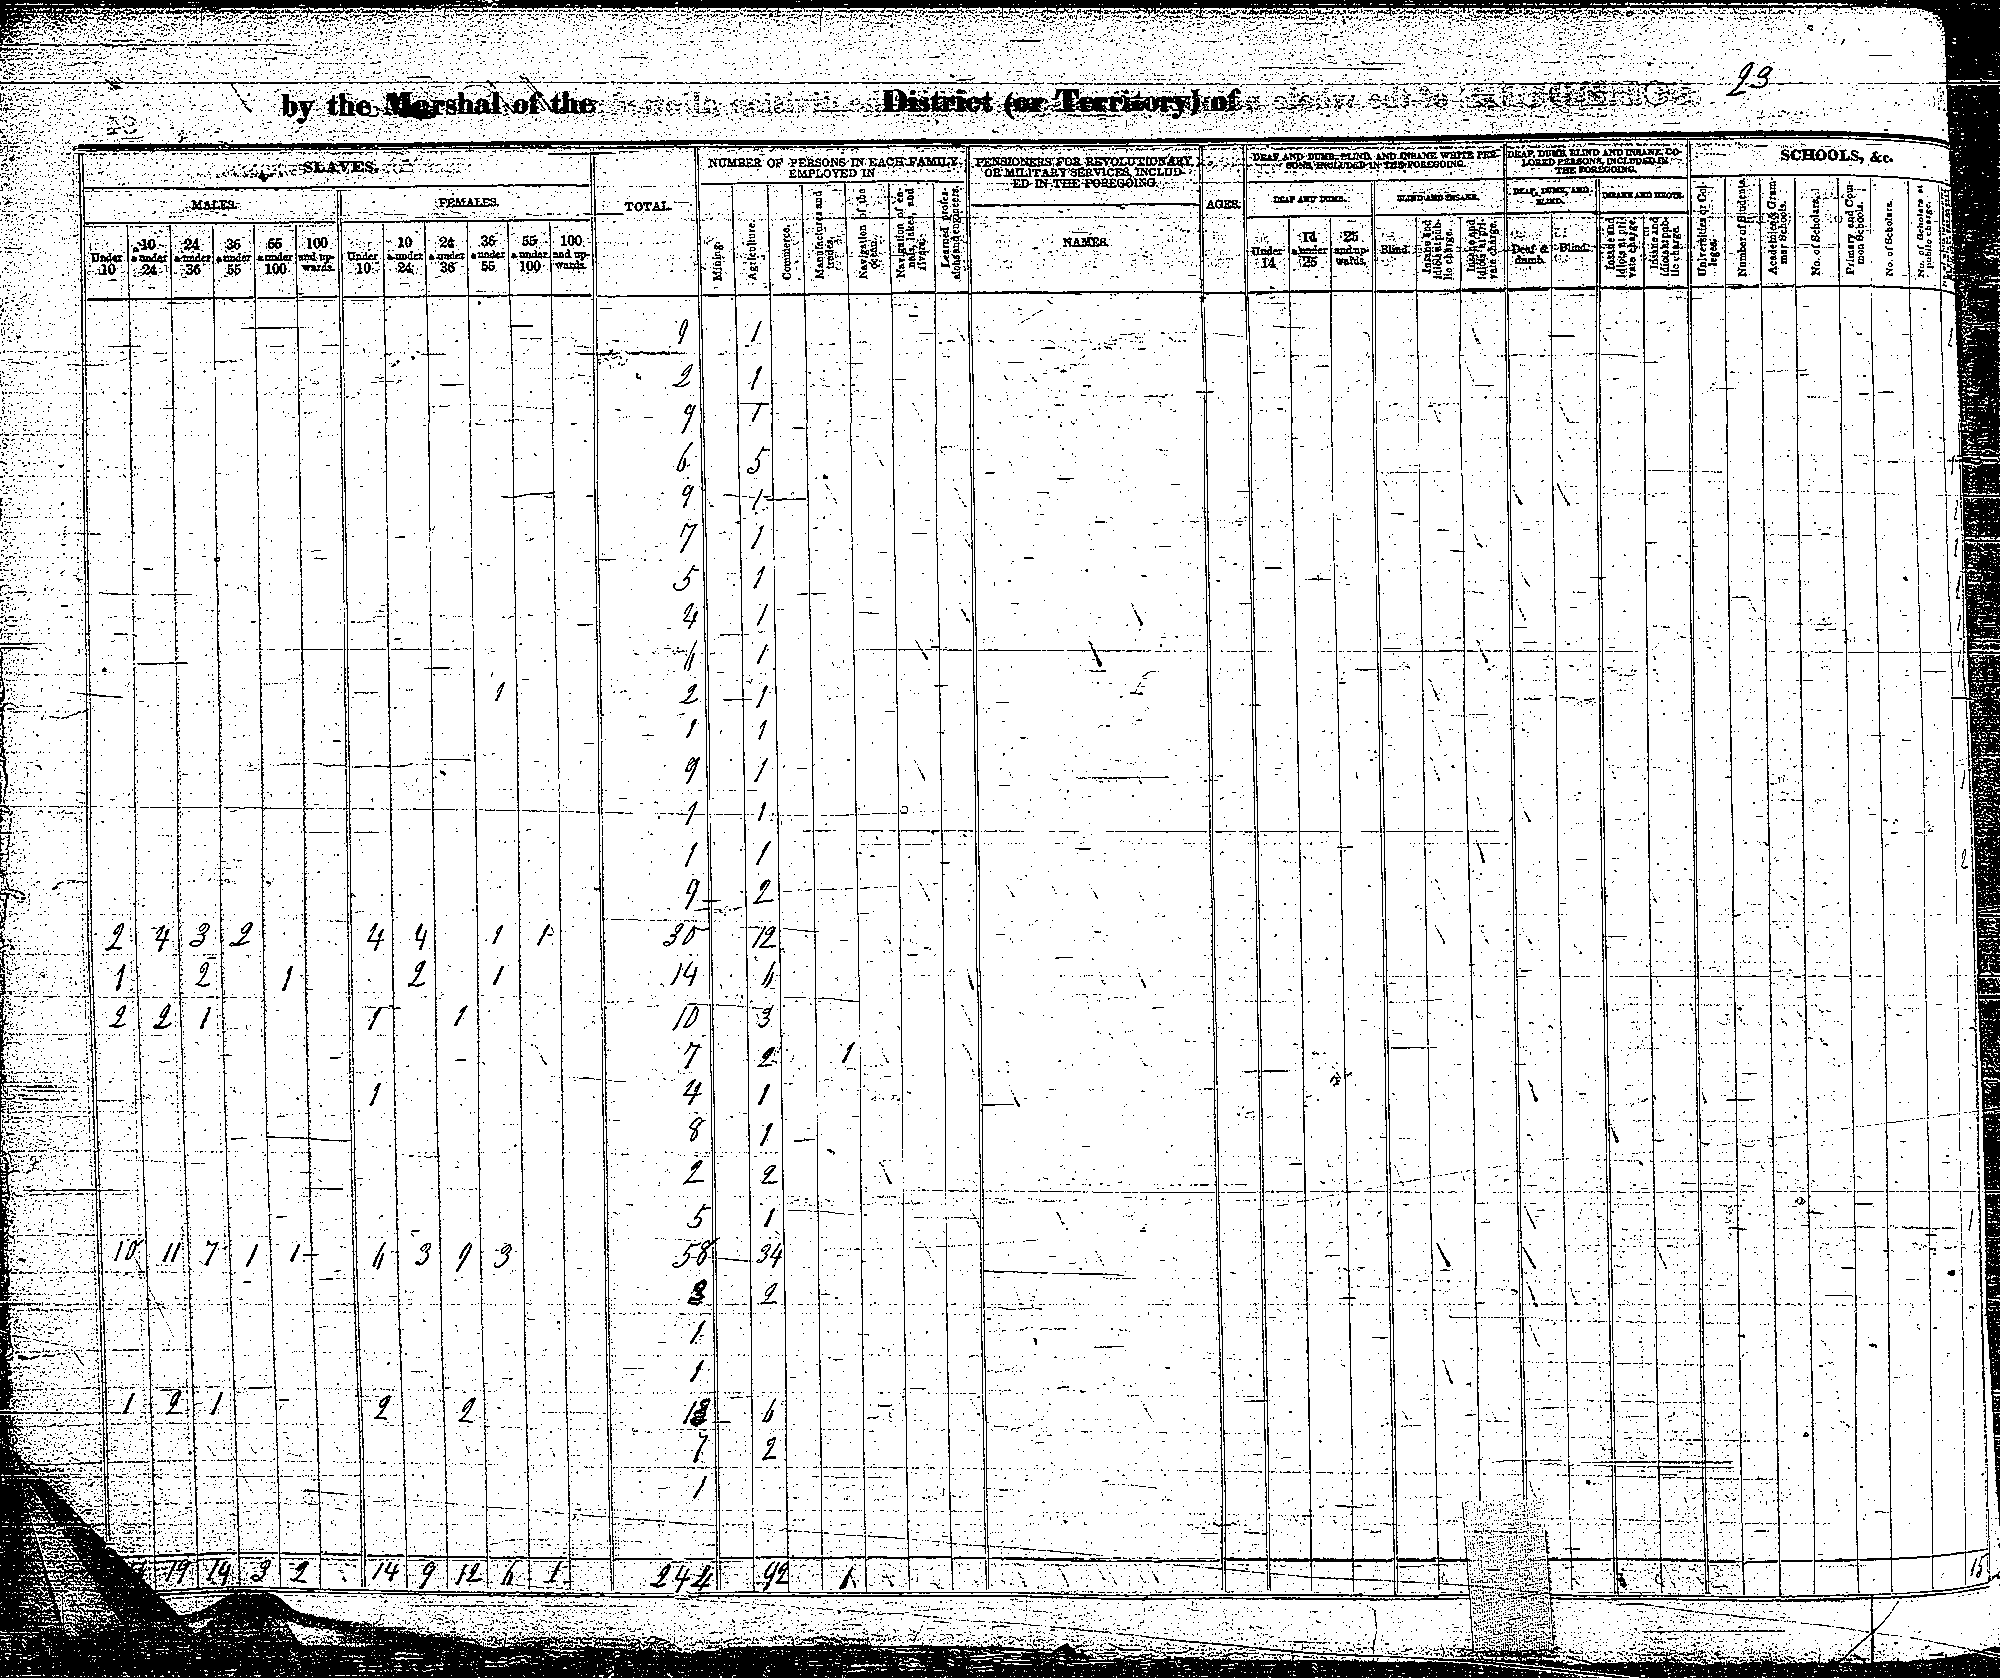 23
by the Marshal of the District (or Territory) of
SLAVES.
TOTAL.
NUMBER OF PERSONS IN EACH FAMILY EMPLOYED IN
PENSIONERS FOR REVOLUTIONARY OR MILITARY SERVICES, INCLUDED IN THE FOREGOING.
AGES.
DEAF AND DUMB, BLIND, AND INSANE WHITE PERSONS, INCLUDED IN THE FOREGOING.
DEAF, DUMB, BLIND AND INSANE COLORED PERSONS, INCLUDED IN THE FOREGOING.
SCHOOLS, &c.
MALES. FEMALES.
NAMES.
DEAF AND DUMB. BLIND AND INSANE. DEAF, DUMB, AND BLIND. INSANE AND IDIOTS.
Under 10 10 & under 24 24 & under 36 36 & under 55 55 & under 100 100 and upwards.
Under 10 10 & under 24 24 & under 36 36 & under 55 55 & under 100 100 and upwards.
Mining. Agriculture. Commerce. Manufactures and trades. Navigation of the ocean. Navigation of canals, lakes, and rivers. Learned professions and engineers.
Under 14 14 & under 25 25 and upwards. Blind. Insane and idiots at public charge. Insane and idiots at private charge.
Deaf & dumb. Blind. Insane and idiots at private charge. Insane and idiots at public charge.
Universities or Colleges. Number of Students. Academies & Grammar Schools. No. of Scholars. Primary and Common Schools. No. of Scholars. No. of Scholars at public charge.
9 1 1
2 1
9 1
6 5
9 1 1
7 1 1
5 1 1
4 1 1
6 1 1
1 2 1
1 1
9 1 1
1 1
1 1 2
9 2
2 4 3 2 4 4 1 1 30 12
1 2 1 2 1 14 6
2 2 1 1 1 10 3
7 2 1
1 4 1
8 1
2 2
5 1 1
10 11 7 1 1 6 3 9 3 58 34
3 2
1
1
1 2 1 2 2 6
7 2
1
19 14 3 2 14 9 12 6 1 244 92 1 15